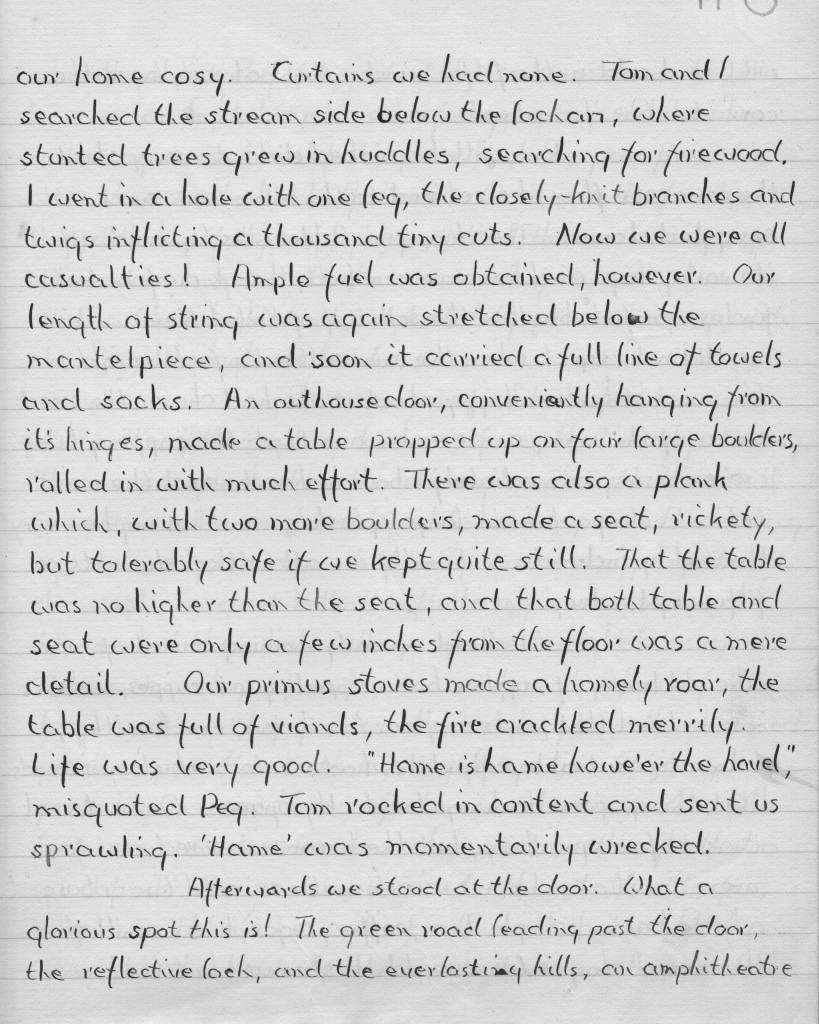 our home cosy. Curtains we had none. Tom and I
searched the stream side below the lochan, where
stunted trees grew in huddles, searching for firewood.
I went in a hole with one leg, the closely-knit branches and
twigs inflicting a thousand tiny cuts. Now we were all
casualties! Ample fuel was obtained, however. Our
length of string was again stretched below the
mantelpiece, and soon it carried a full line of towels
and socks. An outhouse door, conveniently hanging from
it's hinges, made a table propped up on four large boulders,
rolled in with much effort. There was also a plank
which, with two more boulders, made a seat, rickety,
but tolerably safe if we kept quite still. That the table
was no higher than the seat, and that both table and
seat were only a few inches from the floor was a mere
detail. Our primus stoves made a homely roar, the
table was full of viands, the fire crackled merrily.
Life was very good. "Hame is hame howe'er the hovel,"
misquoted Peg. Tom rocked in content and sent us
sprawling. 'Hame' was momentarily wrecked.
Afterwards we stood at the door. What a
glorious spot this is! The green road leading past the door,
the reflective loch, and the everlasting hills, an amphitheatre